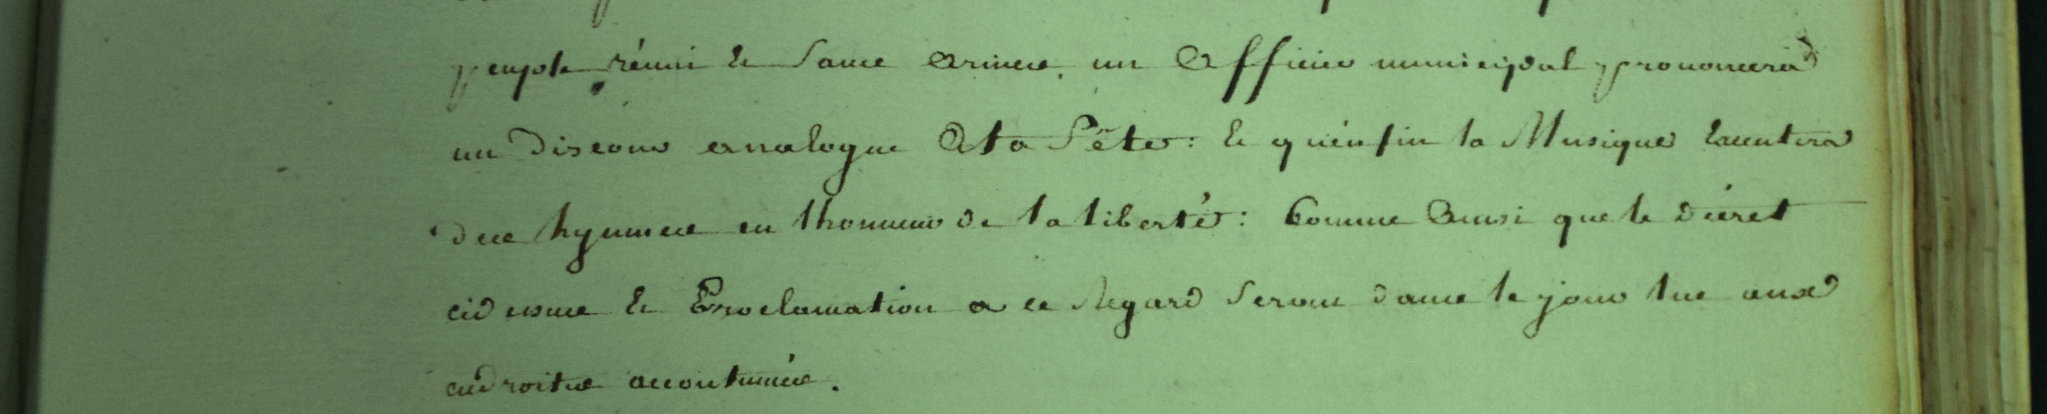 peuple réuni & sans armes, un Officier municipal prononcera
un discours analogue a la fête: & qu'enfin la Musique executera
des hymnes en lhonneur de la liberté: Comme aussi que le décret
cidessus & Proclamation a ce Regard seront dans le jour lue aux
endroits accoutumés.